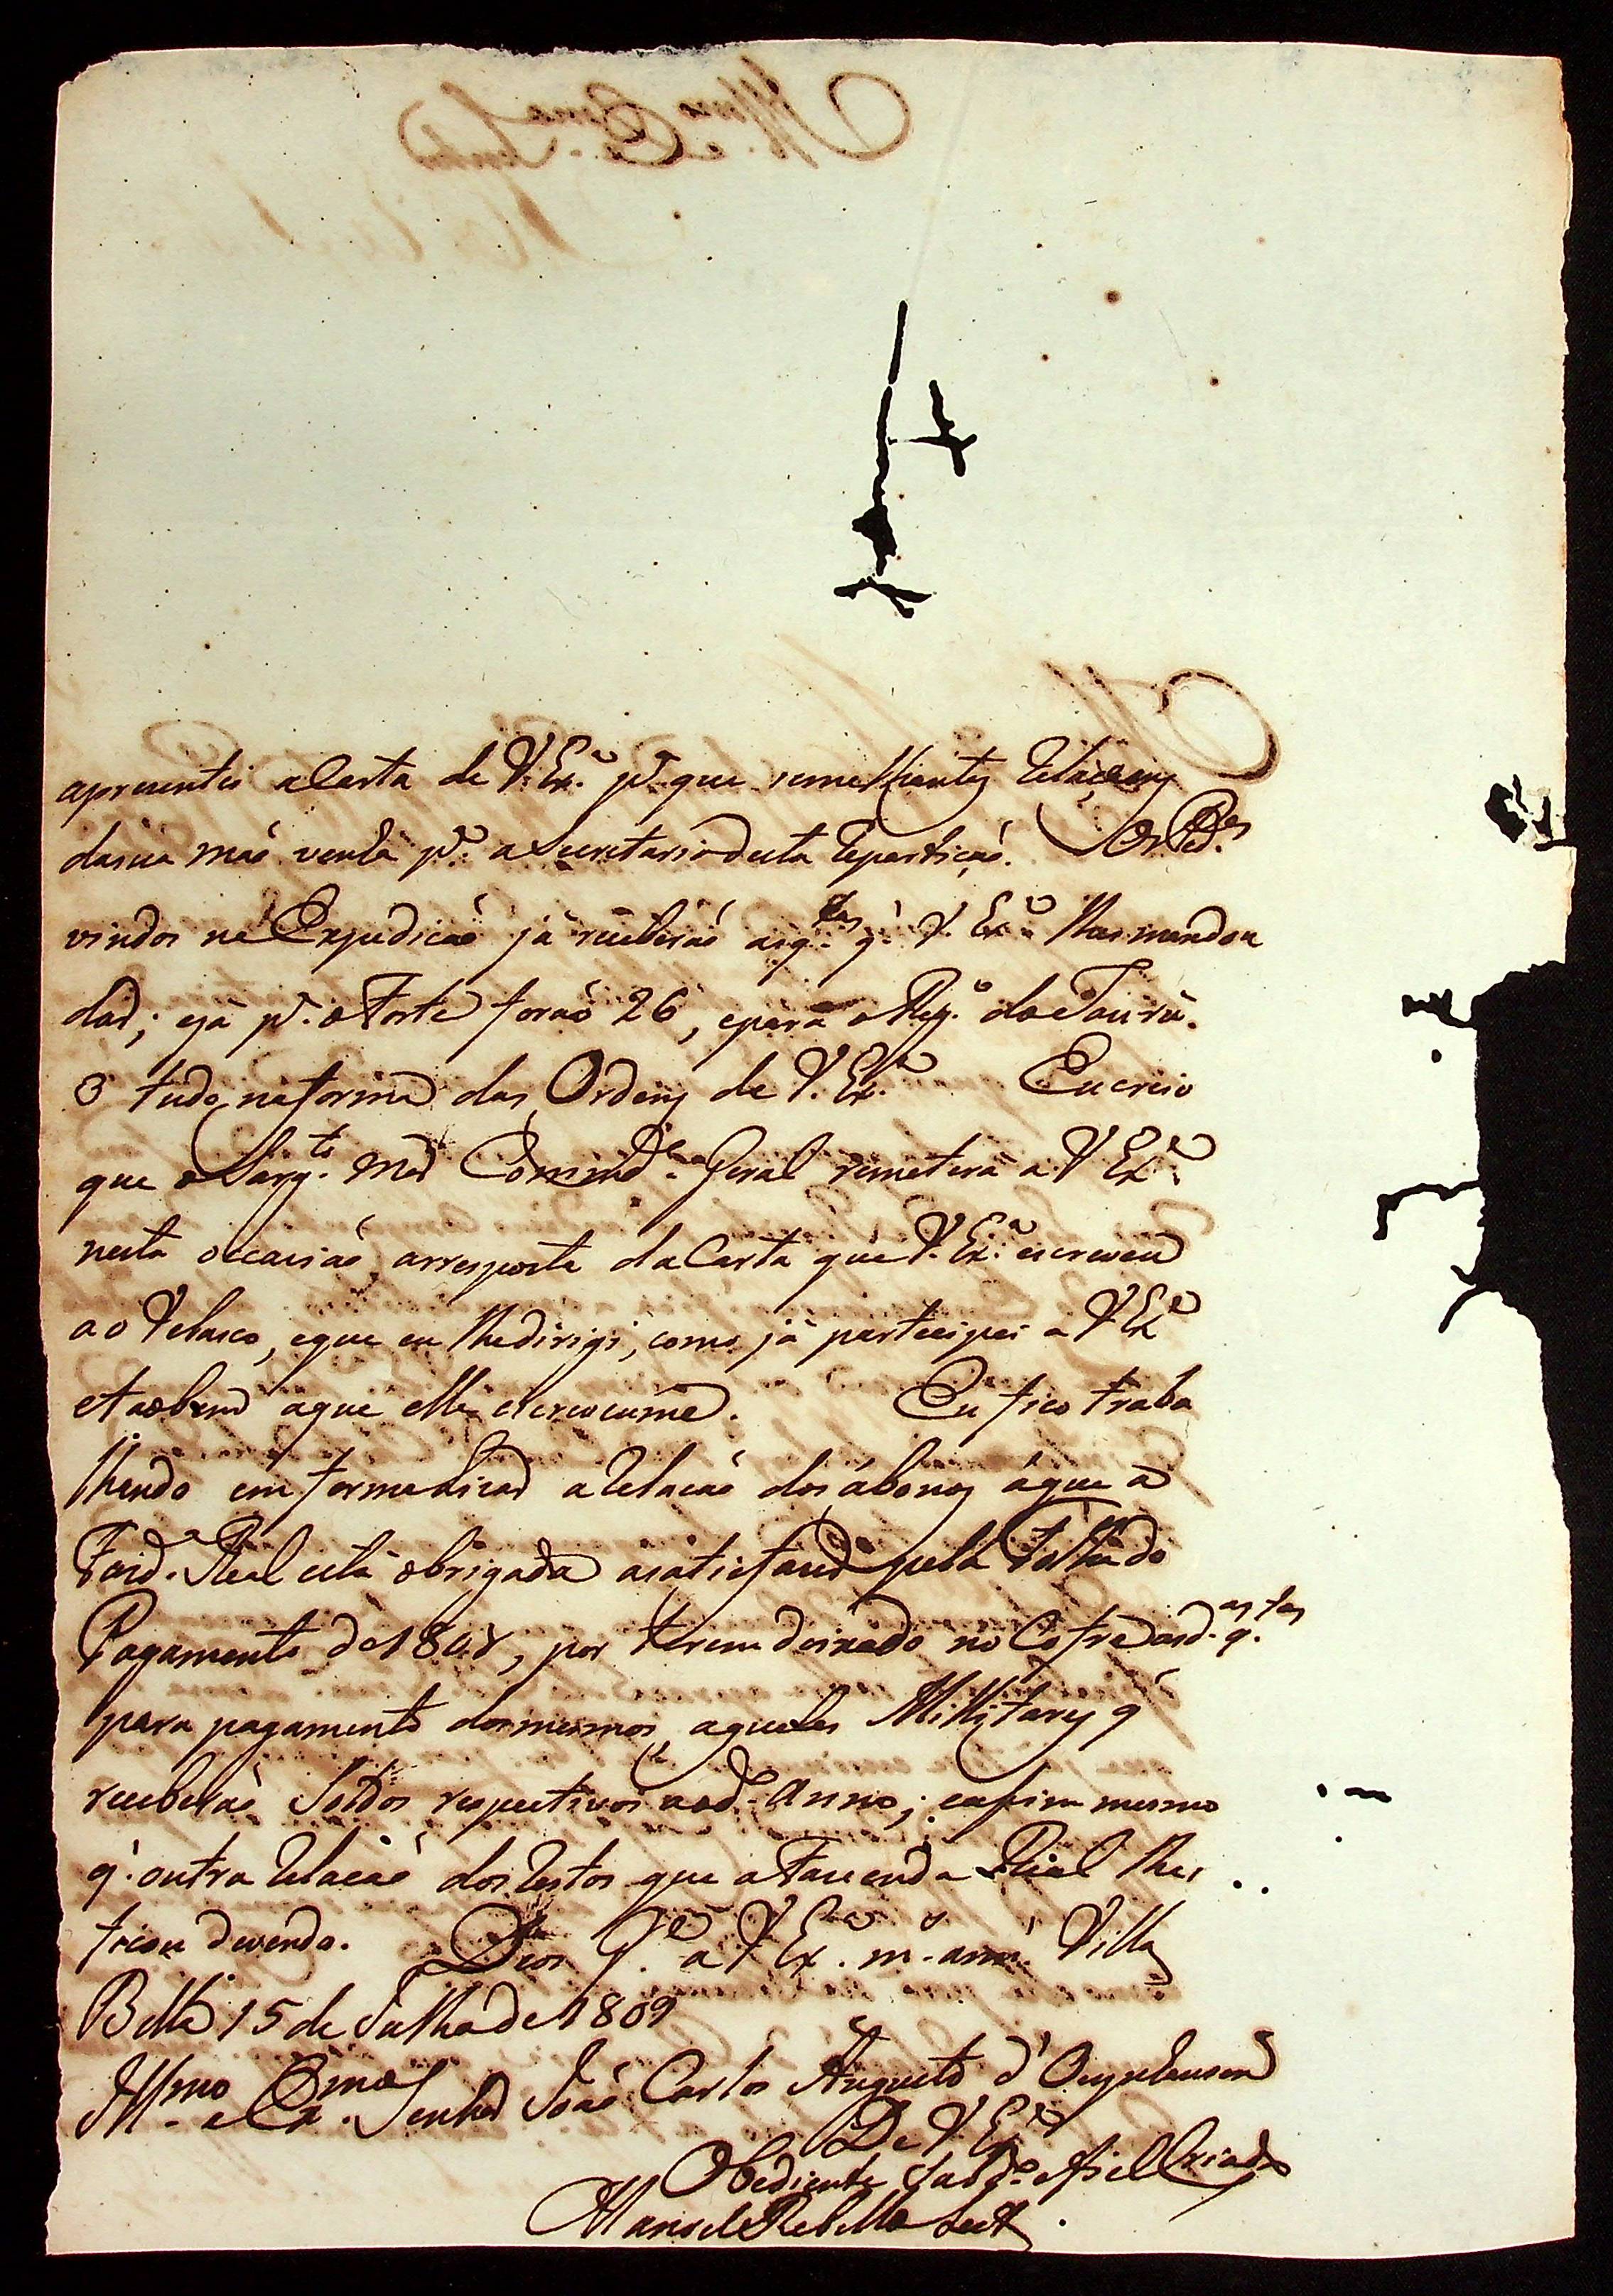 apresentei a Carta de V. Exª pª que semelhantes Relaçoens
da sua mão venhã pª a Secretaria desta Repartição. Os Pedes
vindos na Expedicão já receberão as q.tas q' V. Exª lhes mandou
dar; e já pª o Forte forão 26, e para o Reg.º do Jaurú.
3 tudo na forma das Ordens de V. Exª Eu creio
que o Sarg.to Mor Commd.e Geral remeterá a V Exª
nesta occasião, arresposta da Carta que V. Exª escreveu
ao Velasco, e que eu lhe dirigi, como já participei a V Exª
e taobem a que elle escreveume. Eu fico traba
lhando em formalizar a Relacão dos ábonos á que a
Fazd.ª Real está obrigada a satisfazer pela falta do
Pagamento de 1808, por terem deixado no Cofre as d.as q.tas
para pagamento dos mesmos, aqueles Millitares q'
receberão Soldos respectivos ao d.º Anno; e assim mesmo
q' outra Relacão dos Restos que a Fazenda Real lhes
ficou devendo. Deos G.e a V Exª m.s an.s Villa
Bella 15 de Julho de 1809
Ill.mo e Ex.mo Senhor João Carlos Augusto d'Oeynhausen
De V Exª
Obediente Subd.º e fiel Criado
Manoel Rebello